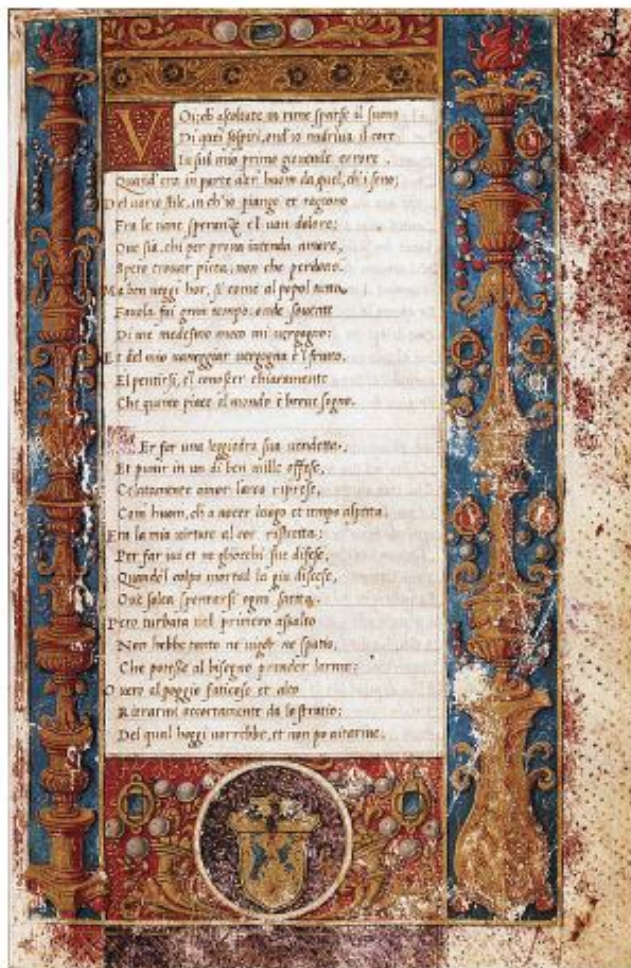 12
VOi; ch ascoltate in rime sparse il suono
Di quei sospiri, ond'io nudriva il core
In sul mio primo giovenile errore,
Quand'era in parte altr' huom da quel, ch'i sono;
Del vario stile, in ch'io piango et ragiono
Fra le vane speranze e'l van dolore;
Oue sia, chi per prova intenda amore,
Spero trovar pieta, non che perdono.
Ma ben veggi hor, si come al popol tutto
Favola fui gran tempo: onde sovente
Di me medesmo meco mi vergogno:
Et del mio vaneggiar vergogna è'l frutto,
El pentirsi, e'l conoscer chiaramente
Che quanto piace al mondo è breve sogno.
Per far una leggiadra sua vendetta,
Et punir in un di ben mille offese,
Celatamente amor l'arco riprese,
Com huom, ch a nocer luogo et tempo aspetta.
Era la mia virtute al cor ristretta:
Per far ivi et ne gliocchi sue difese,
Quando'l colpo mortal la giu discese,
Oue solea spuntarsi ogni saetta.
Pero turbata nel primero assalto
Non hebbe tanto ne vigor ne spatio,
Che potesse al bisogno prender larme;
O vero al poggio faticoso et alto
Ritrarmi accortamente da lo stratio;
Del qual hoggi vorrebbe, et non po aitarme.